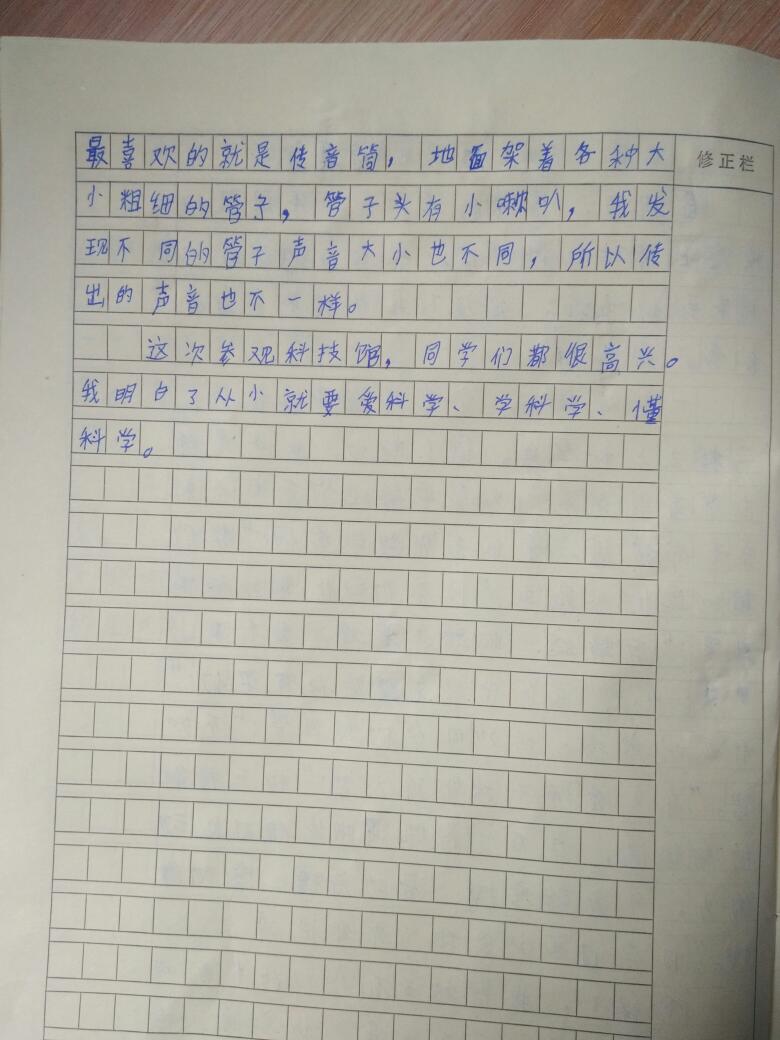 最喜欢的就是传音筒，地面架着各种大
修正栏
小粗细的管子，管子头有小喇叭，我发
现不同的管子声音大小也不同，所以传
出的声音也不一样。
这次参观科技馆，同学们都很高兴。
我明白了从小就要爱科学、学科学、懂
科学。